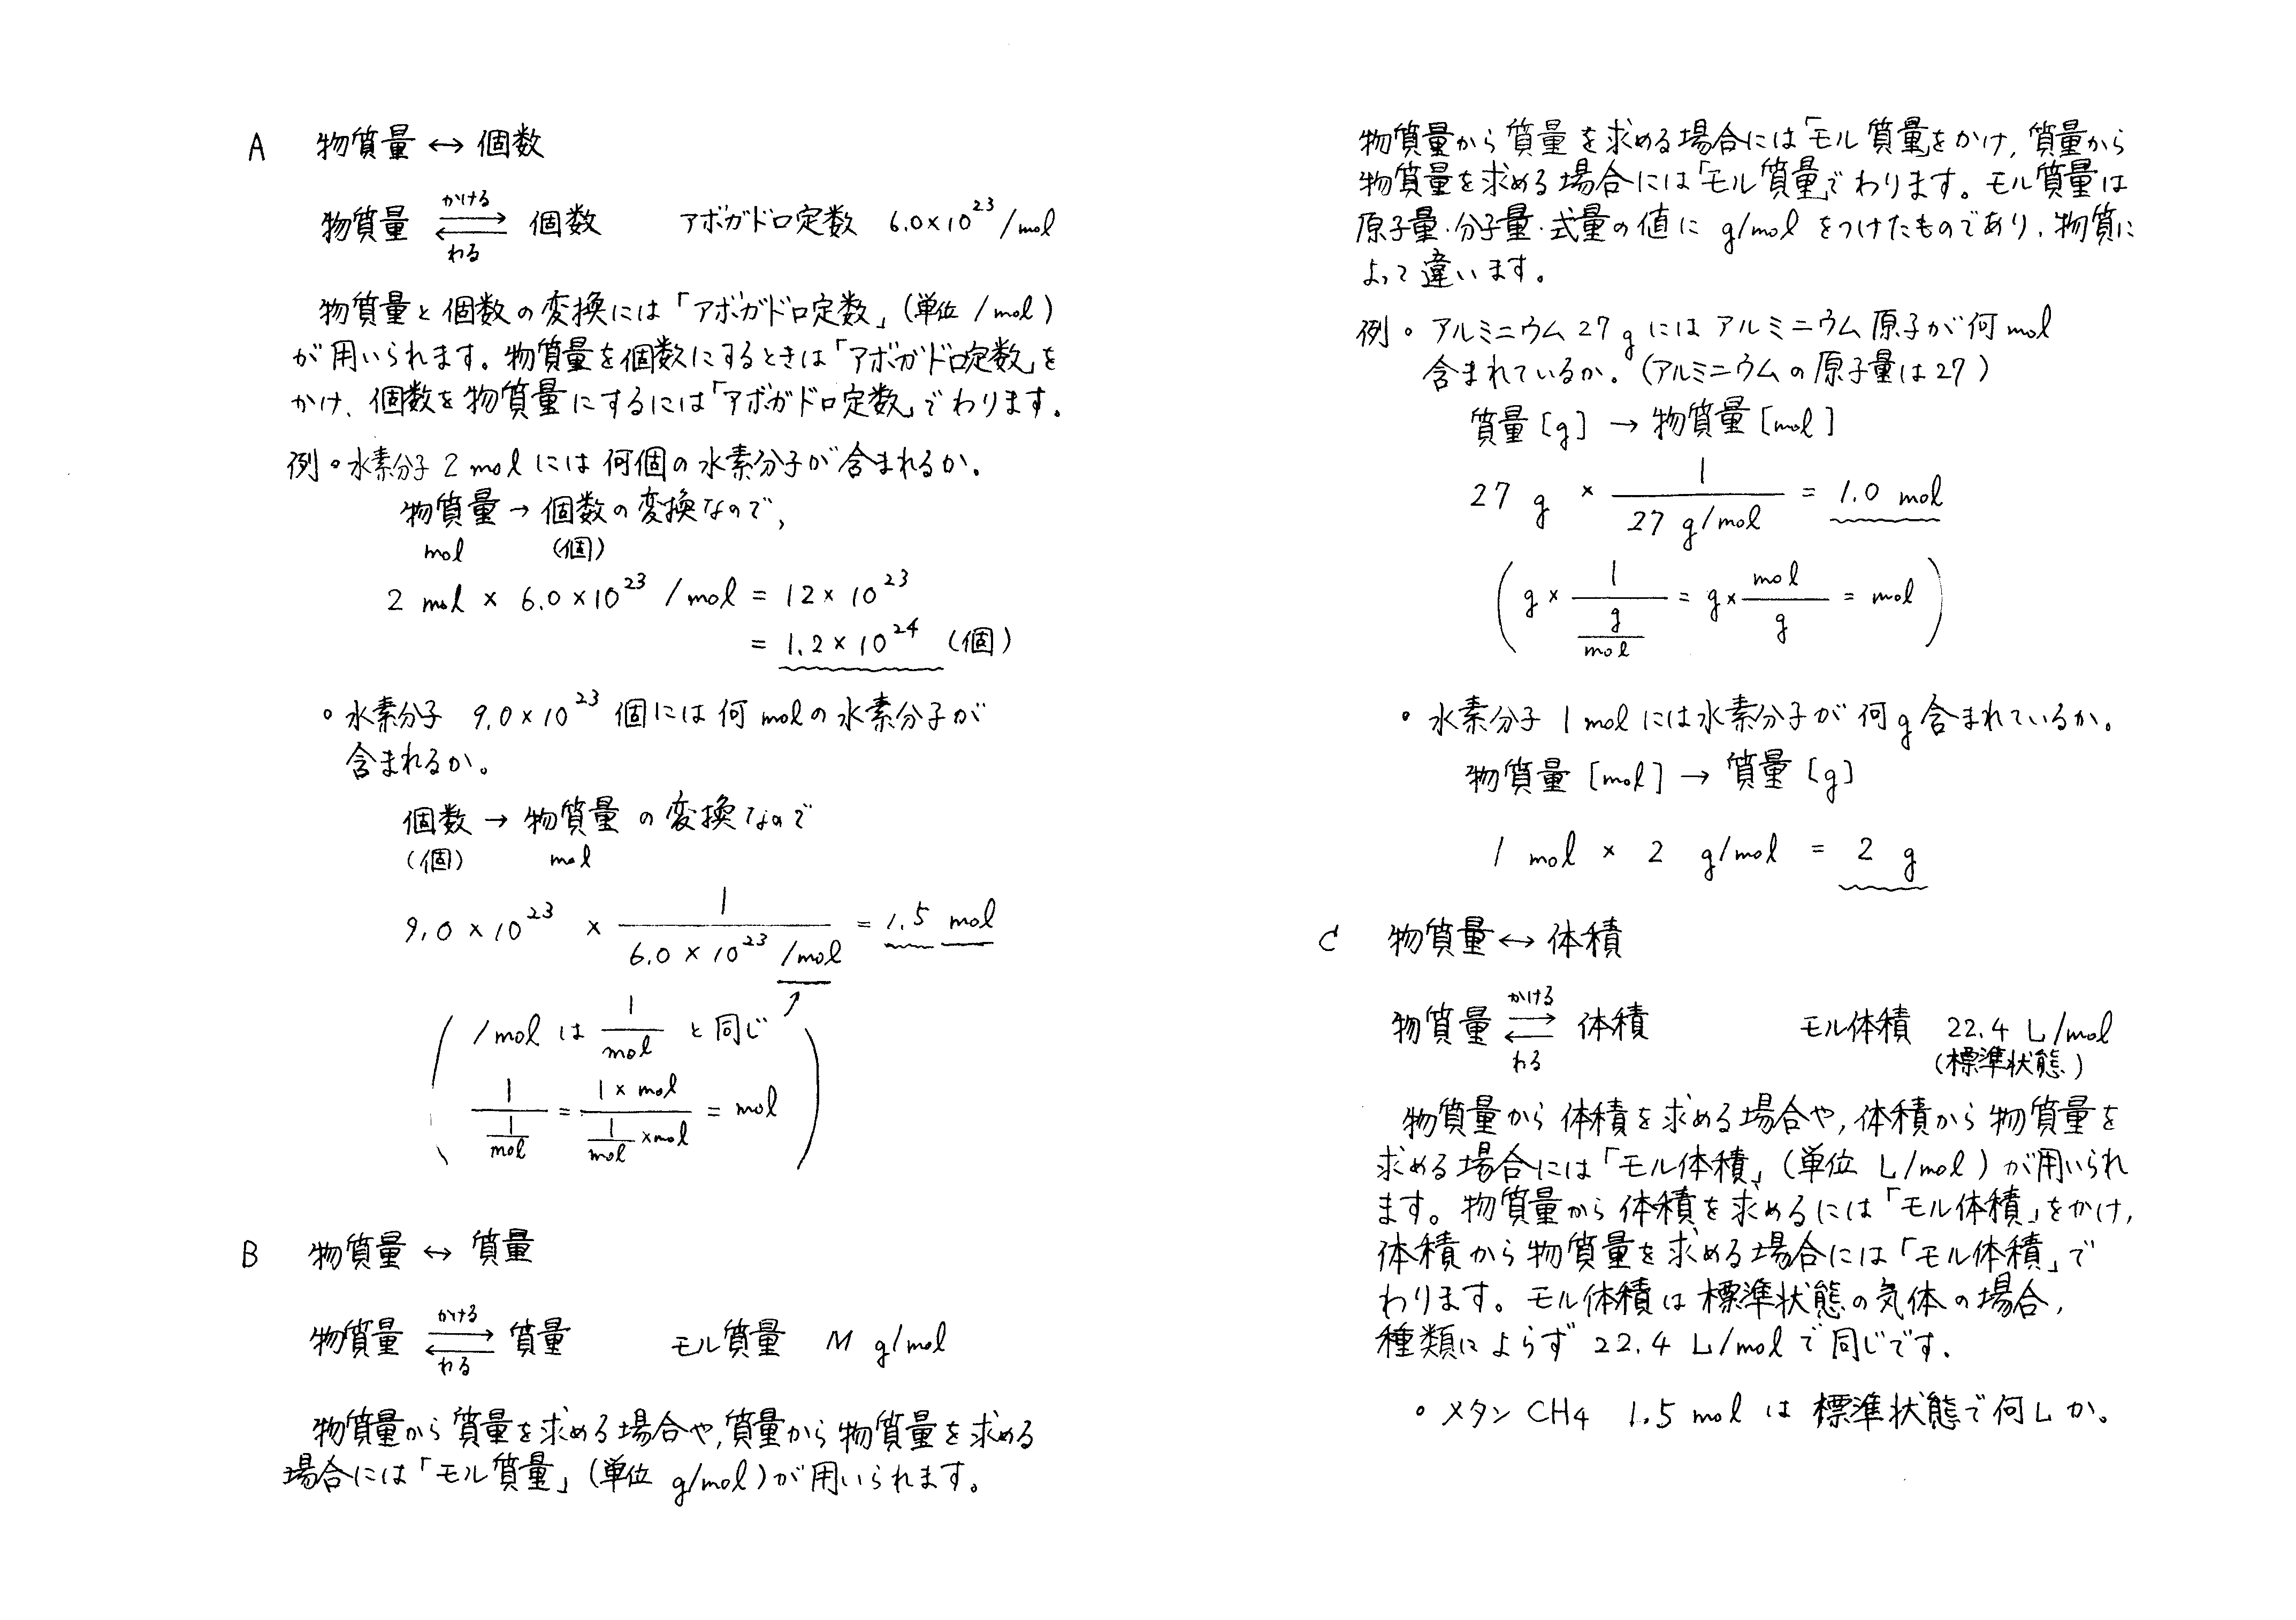 A 物質量 ↔ 個数
かける
物質量 ⇄ 個数 アボガドロ定数 6.0×10²³/mol
わる
物質量と個数の変換には「アボガドロ定数」(単位 /mol)
が用いられます。物質量を個数にするときは「アボガドロ定数」を
かけ、個数を物質量にするには「アボガドロ定数」でわります。
例 ∘ 水素分子 2 mol には何個の水素分子が含まれるか。
物質量 → 個数の変換なので,
mol (個)
2 mol × 6.0×10²³ /mol = 12×10²³
= 1.2×10²⁴ (個)
∘ 水素分子 9.0×10²³ 個には何 molの水素分子が
含まれるか。
個数 → 物質量 の変換なので
(個) mol
9.0×10²³ × 1/(6.0×10²³ /mol) = 1.5 mol
( /mol は 1/mol と同じ
1/(1/mol) = (1×mol)/(1/mol ×mol) = mol )
B 物質量 ↔ 質量
かける
物質量 ⇄ 質量 モル質量 M g/mol
わる
物質量から質量を求める場合や,質量から物質量を求める
場合には「モル質量」(単位 g/mol)が用いられます。
物質量から質量を求める場合には「モル質量」をかけ,質量から
物質量を求める場合には「モル質量」でわります。モル質量は
原子量・分子量・式量の値に g/mol をつけたものであり,物質に
よって違います。
例 ∘ アルミニウム 27 g にはアルミニウム原子が何mol
含まれているか。(アルミニウムの原子量は27)
質量 [g] → 物質量 [mol]
27 g × 1/(27 g/mol) = 1.0 mol
( g × 1/(g/mol) = g× mol/g = mol )
∘ 水素分子 1 mol には水素分子が何g含まれているか。
物質量 [mol] → 質量 [g]
1 mol × 2 g/mol = 2 g
C 物質量 ↔ 体積
かける
物質量 ⇄ 体積 モル体積 22.4 L/mol
わる (標準状態)
物質量から体積を求める場合や,体積から物質量を
求める場合には「モル体積」(単位 L/mol)が用いられ
ます。物質量から体積を求めるには「モル体積」をかけ,
体積から物質量を求める場合には「モル体積」で
わります。モル体積は標準状態の気体の場合,
種類によらず 22.4 L/mol で同じです。
∘ メタン CH₄ 1.5 mol は標準状態で何Lか。